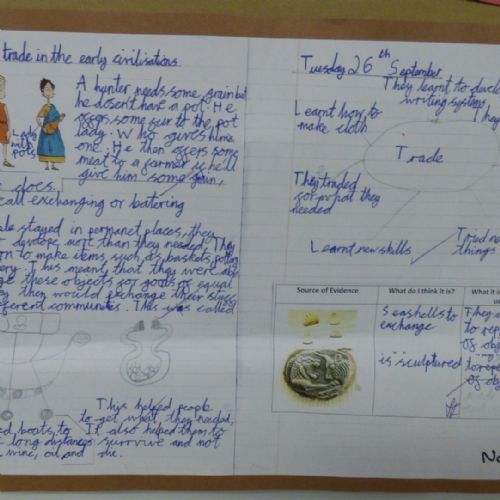 trade in the early civilisations
A hunter needs some grain but
he doesn't have a pot. He
offers some fur to the pot
lady. Who gives him
one. He then offers some
meat to a farmer is he'll
give him some grain,
Lady
with
pots
does.
call exchanging or batering
stayed in permanet places, they
more than they needed. They
to make items, such as baskets, pottery
This meant that they were able
these objects for goods of equal
they would exchange their
communites. This was called
This helped people
to get what they needed,
boats to It also helped them to
long distances surrvive and not
wine, oil and die.
Tuesday 26th September
They learnt to
writing systems
They
Learnt how to
make cloth
Trade
They traded
for what they
needed
Learnt new skills
Tried new
things
Source of Evidence What do I think it is? What it i
Seashells to
exchange
is sculptured
They
to rep
of obj
to repre
of obj
No